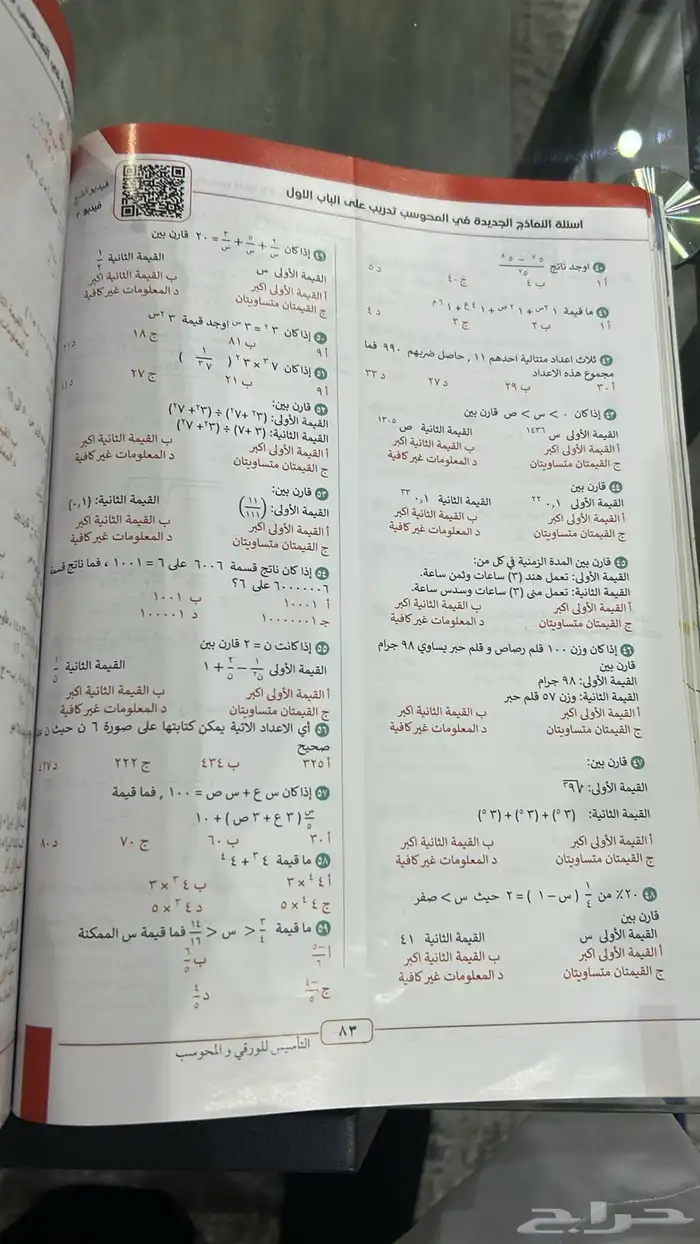 فيديو الشرح
فيديو ٢
اسئلة النماذج الجديدة في المحوسب تدريب على الباب الاول
٤٠ اوجد ناتج (٧٥ − ٨٥) / ٧٥
أ ١ ب ٤ ج -٤ د ٥
٤١ ما قيمة
أ ١ ب ٢ ج ٣ د ٤
٤٢ ثلاث اعداد متتالية احدهم ١١ , حاصل ضربهم ٩٩٠ فما
مجموع هذه الاعداد
أ ٣٠ ب ٢٩ د ٢٧ د ٣٣
٤٣ إذا كان ٠ > س > ص قارن بين
القيمة الأولى س ١٤٣٦ القيمة الثانية ص ١٣٠٥
أ القيمة الأولى اكبر ب القيمة الثانية اكبر
ج القيمتان متساويتان د المعلومات غير كافية
٤٤ قارن بين
القيمة الأولى ٠,١ ٢٢ القيمة الثانية ٠,١ ٣٣
أ القيمة الأولى اكبر ب القيمة الثانية اكبر
ج القيمتان متساويتان د المعلومات غير كافية
٤٥ قارن بين المدة الزمنية في كل من:
القيمة الأولى: تعمل هند (٣) ساعات وثمن ساعة.
القيمة الثانية: تعمل منى (٣) ساعات وسدس ساعة.
أ القيمة الأولى اكبر ب القيمة الثانية اكبر
ج القيمتان متساويتان د المعلومات غير كافية
٤٦ إذا كان وزن ١٠٠ قلم رصاص و قلم حبر يساوي ٩٨ جرام
قارن بين
القيمة الأولى: ٩٨ جرام
القيمة الثانية: وزن ٥٧ قلم حبر
أ القيمة الأولى اكبر ب القيمة الثانية اكبر
ج القيمتان متساويتان د المعلومات غير كافية
٤٧ قارن بين:
القيمة الأولى:
القيمة الثانية: (٣ ٥) + (٣ ٥) + (٣ ٥)
أ القيمة الأولى اكبر ب القيمة الثانية اكبر
ج القيمتان متساويتان د المعلومات غير كافية
٤٨ ٢٠٪ من ١/٤ (س − ١) = ٢ حيث س > صفر
قارن بين
القيمة الأولى س القيمة الثانية ٤١
أ القيمة الأولى اكبر ب القيمة الثانية اكبر
ج القيمتان متساويتان د المعلومات غير كافية
٤٩ إذا كان ٢/س + ٥/س + ٣/س = ٢٠ قارن بين
القيمة الأولى س القيمة الثانية ١/٢
أ القيمة الأولى اكبر ب القيمة الثانية اكبر
ج القيمتان متساويتان د المعلومات غير كافية
٥٠ إذا كان ٣ ٢ = ٣ س اوجد قيمة ٣ ٢س
أ ٩ ب ٨١ ج ١٨
٥١ إذا كان ٧ ٣ × ٣ ٢ ( ١/٣٧ )
أ ٩ ب ٢١ ج ٢٧
٥٢ قارن بين:
القيمة الأولى: (٣ ٢ + ٧ ٢) ÷ (٣ ٢ + ٧ ٢)
القيمة الثانية: (٣ + ٧) ÷ (٣ ٢ + ٧ ٢)
أ القيمة الأولى اكبر ب القيمة الثانية اكبر
ج القيمتان متساويتان د المعلومات غير كافية
٥٣ قارن بين:
القيمة الأولى: (١١/١١١) القيمة الثانية: (٠,١)
أ القيمة الأولى اكبر ب القيمة الثانية اكبر
ج القيمتان متساويتان د المعلومات غير كافية
٥٤ إذا كان ناتج قسمة ٦٠٠٦ على ٦ = ١٠٠١ ، فما ناتج قسمة
٦٠٠٠٠٠٦ على ٦؟
أ ١٠٠٠١ ب ١٠٠١
ج ١٠٠٠٠٠٠١ د ١٠٠٠٠١
٥٥ إذا كانت ن = ٢ قارن بين
القيمة الأولى ١/٢ن − ٢/ن + ١ القيمة الثانية ١/ن
أ القيمة الأولى اكبر ب القيمة الثانية اكبر
ج القيمتان متساويتان د المعلومات غير كافية
٥٦ أي الاعداد الاتية يمكن كتابتها على صورة ٦ ن حيث ن
صحيح
أ ٣٢٥ ب ٤٣٤ ج ٢٢٢ د ٤٢٧
٥٧ إذا كان س ع + س ص = ١٠٠ , فما قيمة
س/٥ (٣ ع + ٣ ص) + ١٠
أ ٣٠ ب ٦٠ ج ٧٠ د ٨٠
٥٨ ما قيمة ٤ ٣ + ٤ ٤
أ ٤ ٤ × ٣ ب ٤ ٣ × ٣
ج ٤ ٤ × ٥ د ٤ ٣ × ٥
٥٩ ما قيمة ٣/٤ < س < ١٤/١٦ فما قيمة س الممكنة
أ -٥/٦ ب ٥/٦
ج -٤/٥ د ٤/٥
٨٣
التأسيس للورقي و المحوسب
حراج